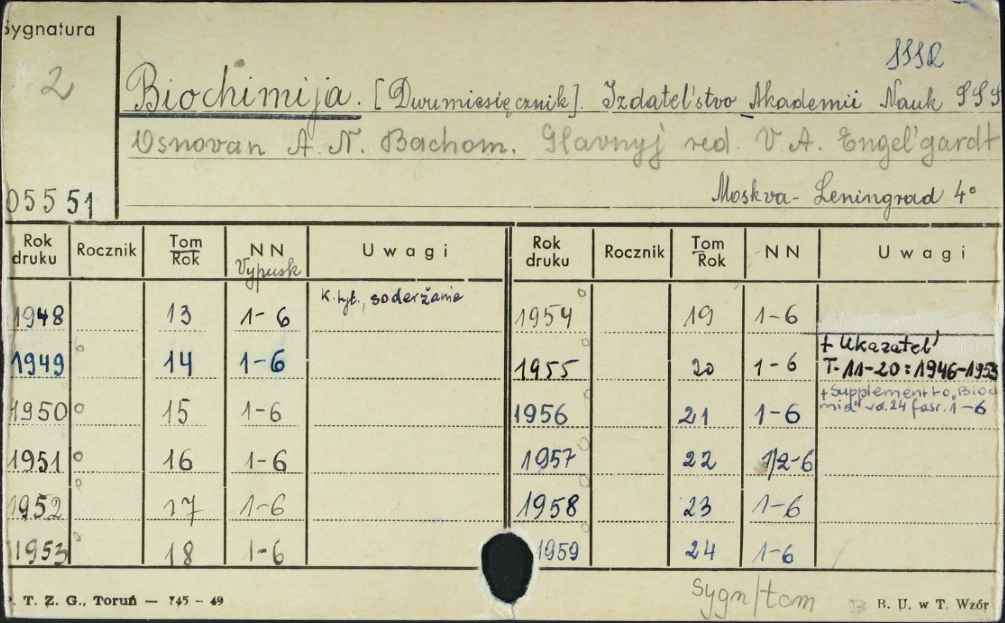 Sygnatura
SSSR
2
Biochimija. [Dwumiesięcznik]. Izdatel'stvo Akademii Nauk SSS
Osnovan A. N. Bachom. Glavnyj red. V A. Engel'gardt
05551
Moskva - Leningrad 4°
Rok druku Rocznik Tom Rok NN Vypusk Uwagi Rok druku Rocznik Tom Rok NN Uwagi
1948 13 1-6 K. tyt., soderžanie 1954 19 1-6
1949 14 1-6 1955 20 1-6 + Ukazatel' T. 11-20: 1946-1955
1950 15 1-6 1956 21 1-6 + Supplement to "Bio vol. 24 fasc. 1-6
1951 16 1-6 1957 22 1/2-6
1952 17 1-6 1958 23 1-6
1953 18 1-6 1959 24 1-6
sygn/tom
T. Z. G., Toruń — 745 - 49
B. U. w T. Wzór